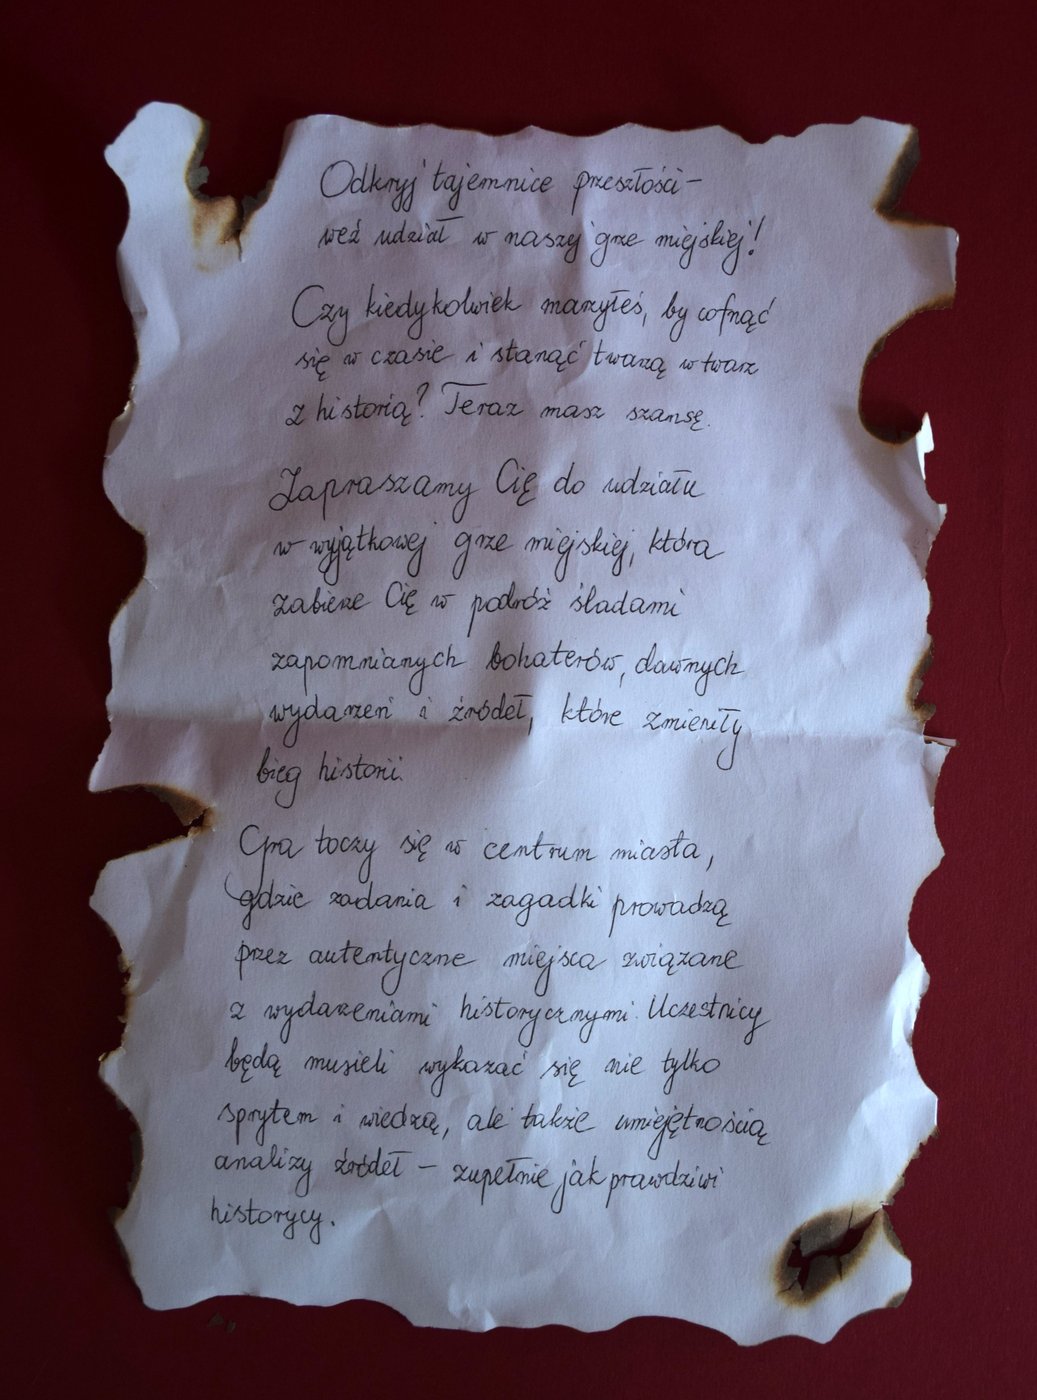 Odkryj tajemnice przeszłości –
weź udział w naszej grze miejskiej!
Czy kiedykolwiek marzyłeś, by cofnąć
się w czasie i stanąć twarzą w twarz
z historią? Teraz masz szansę.
Zapraszamy Cię do udziału
w wyjątkowej grze miejskiej, która
zabierze Cię w podróż śladami
zapomnianych bohaterów, dawnych
wydarzeń i źródeł, które zmieniły
bieg historii.
Gra toczy się w centrum miasta,
gdzie zadania i zagadki prowadzą
przez autentyczne miejsca związane
z wydarzeniami historycznymi. Uczestnicy
będą musieli wykazać się nie tylko
sprytem i wiedzą, ale także umiejętnością
analizy źródeł – zupełnie jak prawdziwi
historycy.